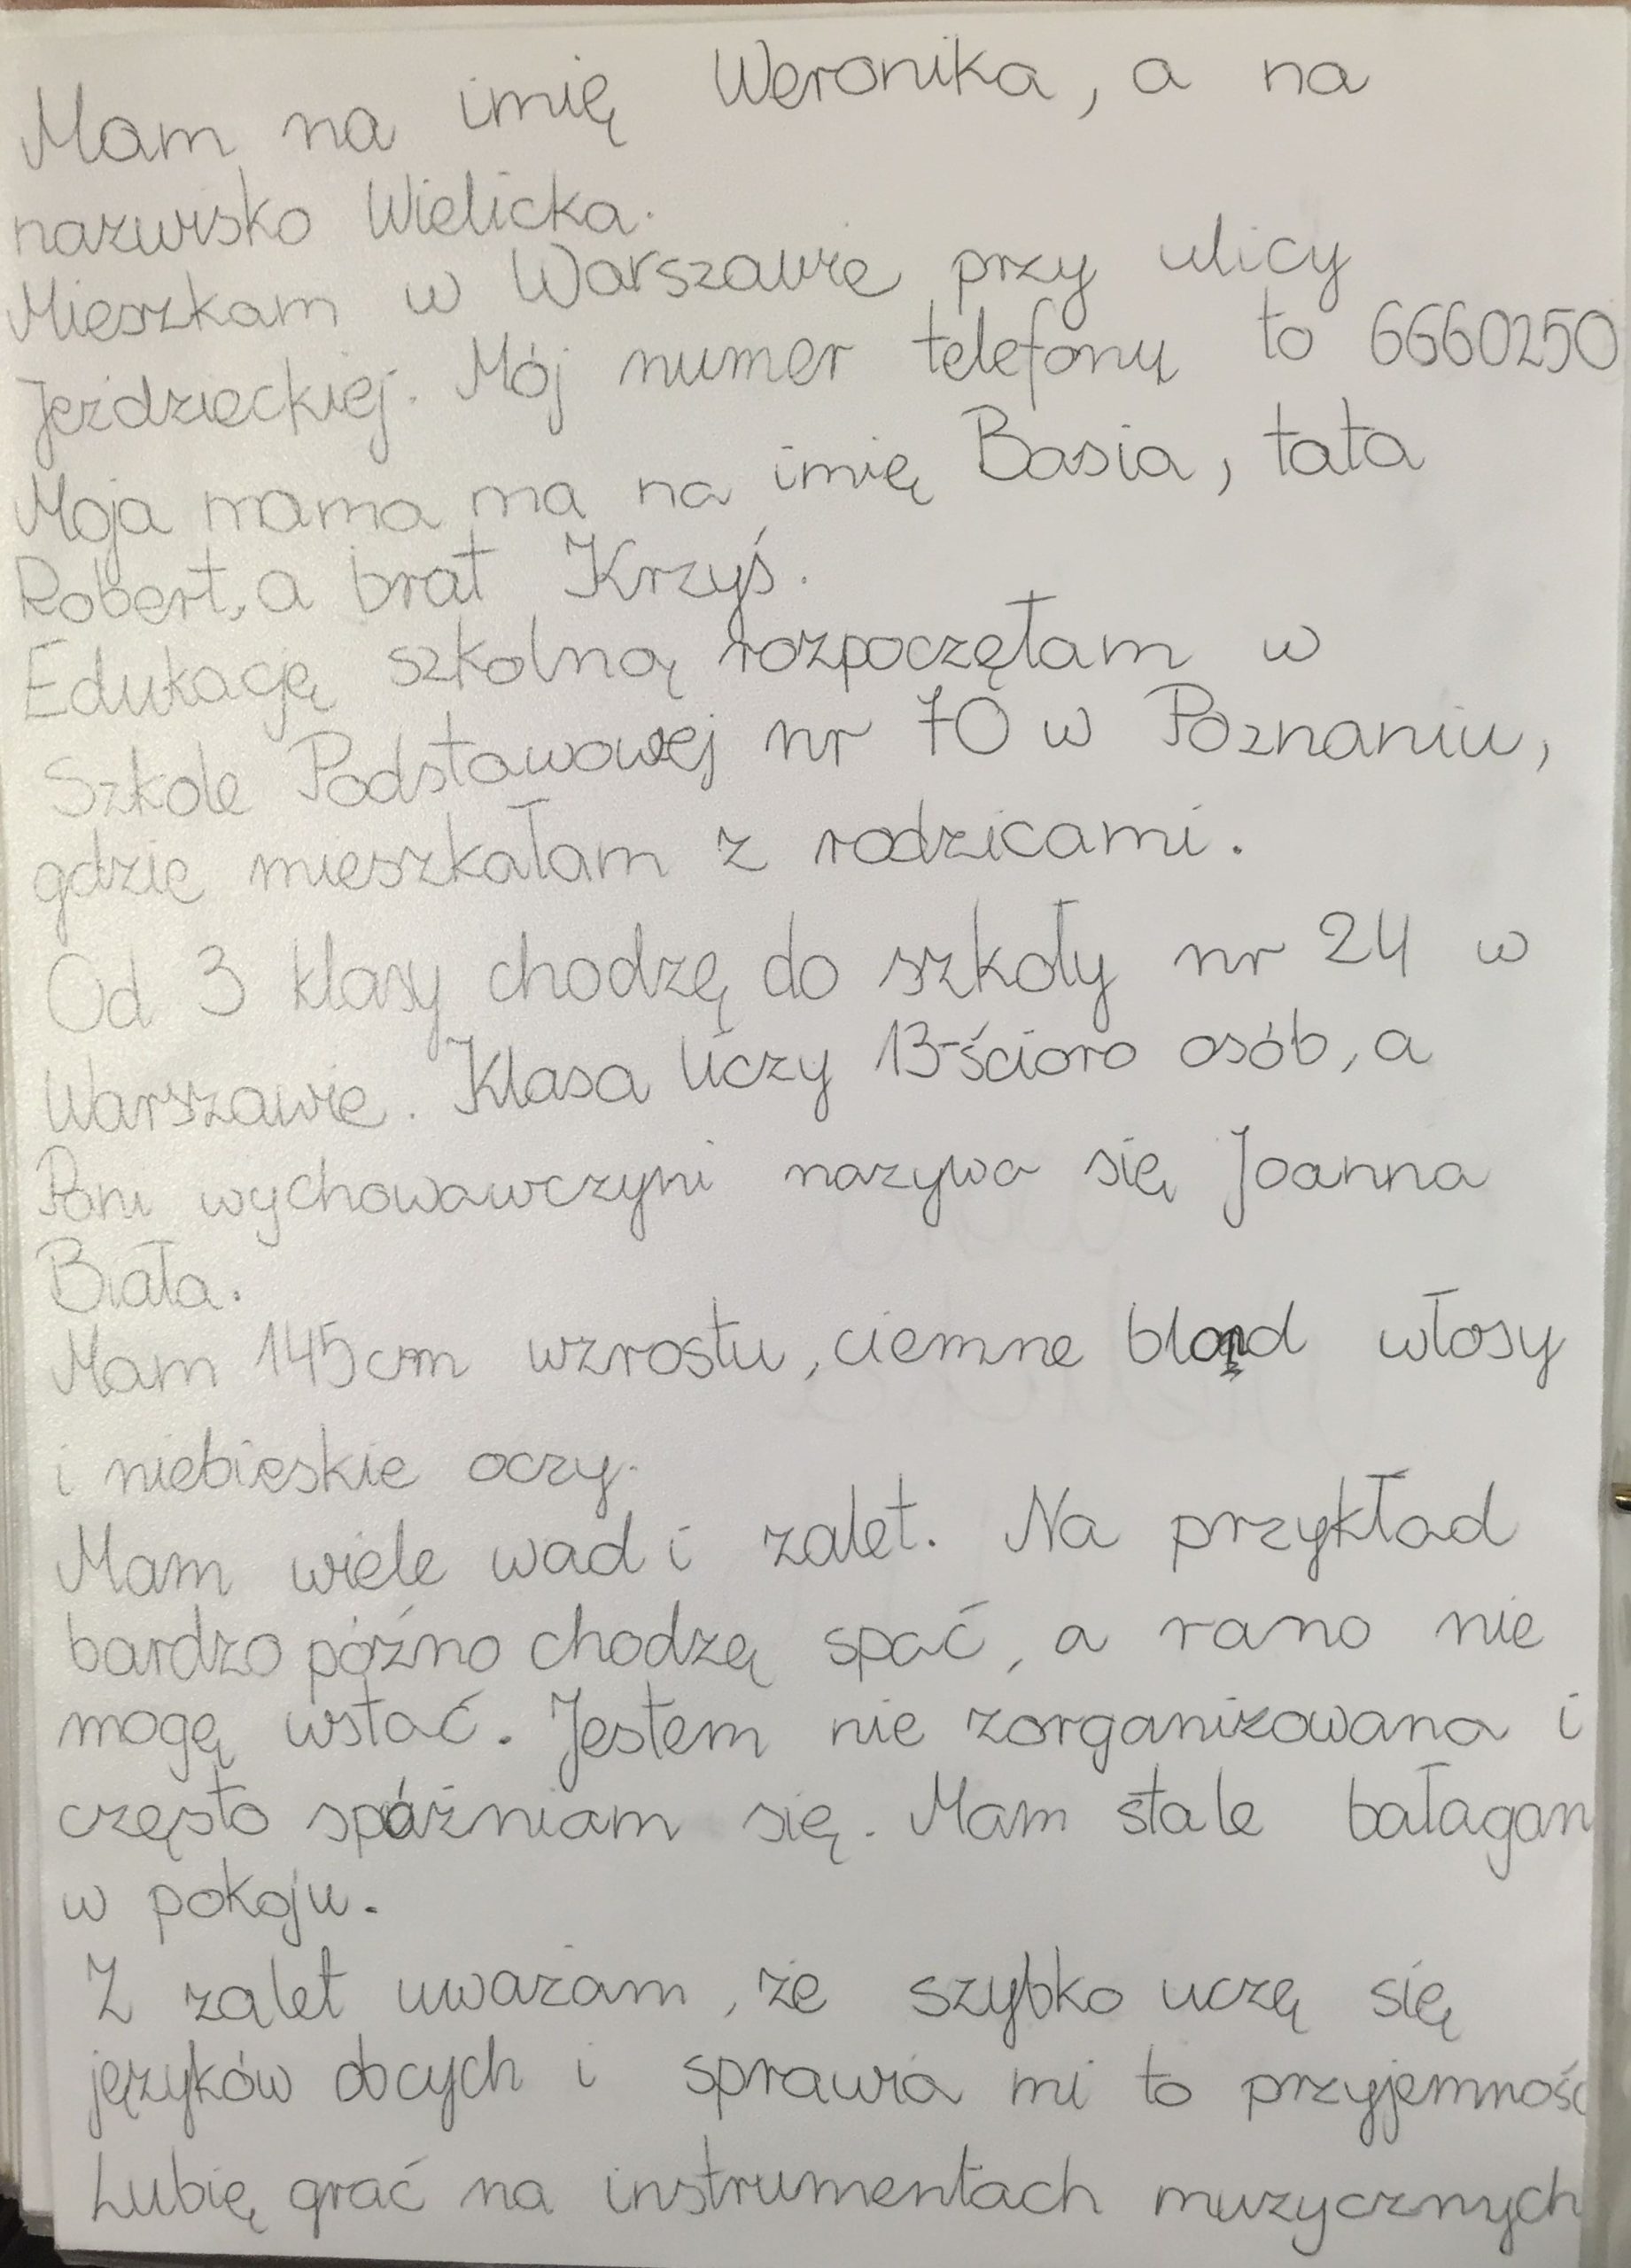 Mam na imię Weronika, a na
nazwisko Wielicka.
Mieszkam w Warszawie przy ulicy
Jeździeckiej. Mój numer telefonu to 6660250
Moja mama ma na imię Basia, tata
Robert, a brat Krzyś.
Edukację szkolną rozpoczęłam w
Szkole Podstawowej nr 70 w Poznaniu,
gdzie mieszkałam z rodzicami.
Od 3 klasy chodzę do szkoły nr 24 w
Warszawie. Klasa liczy 13-ścioro osób, a
Pani wychowawczyni nazywa się Joanna
Biała.
Mam 145cm wzrostu, ciemne blond włosy
i niebieskie oczy.
Mam wiele wad i zalet. Na przykład
bardzo późno chodzę spać, a rano nie
mogę wstać. Jestem nie zorganizowana i
często spóźniam się. Mam stale bałagan
w pokoju.
Z zalet uważam, że szybko uczę się
języków obcych i sprawia mi to przyjemność
Lubię grać na instrumentach muzycznych